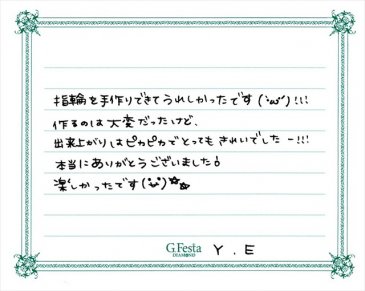 指輪を手作りできてうれしかったです(˙ω˙)!!!
作るのは大変だったけど、
出来上がりはピカピカでとってもきれいでしたー!!!
本当にありがとうございました!
楽しかったです(˙ω˙)☆☆
G.Festa
DIAMOND
Y.E